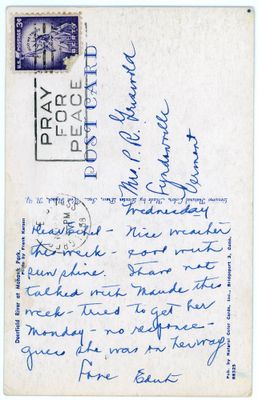 U.S. POSTAGE 3¢
PRAY
FOR
PEACE
POST CARD
Mrs P. R. Griswold
Lyndonville
Vermont
Wednesday
Nice weather
this week - cool with
sunshine. I have not
talked with Maude this
week - tried to get her
Monday - no responce -
guess she was on her way.
Love Edith
Deerfield River at Mohawk Park.
Photo by Frank Hansen
Pub. by Natural Color Cards, Inc., Bridgeport 3, Conn.